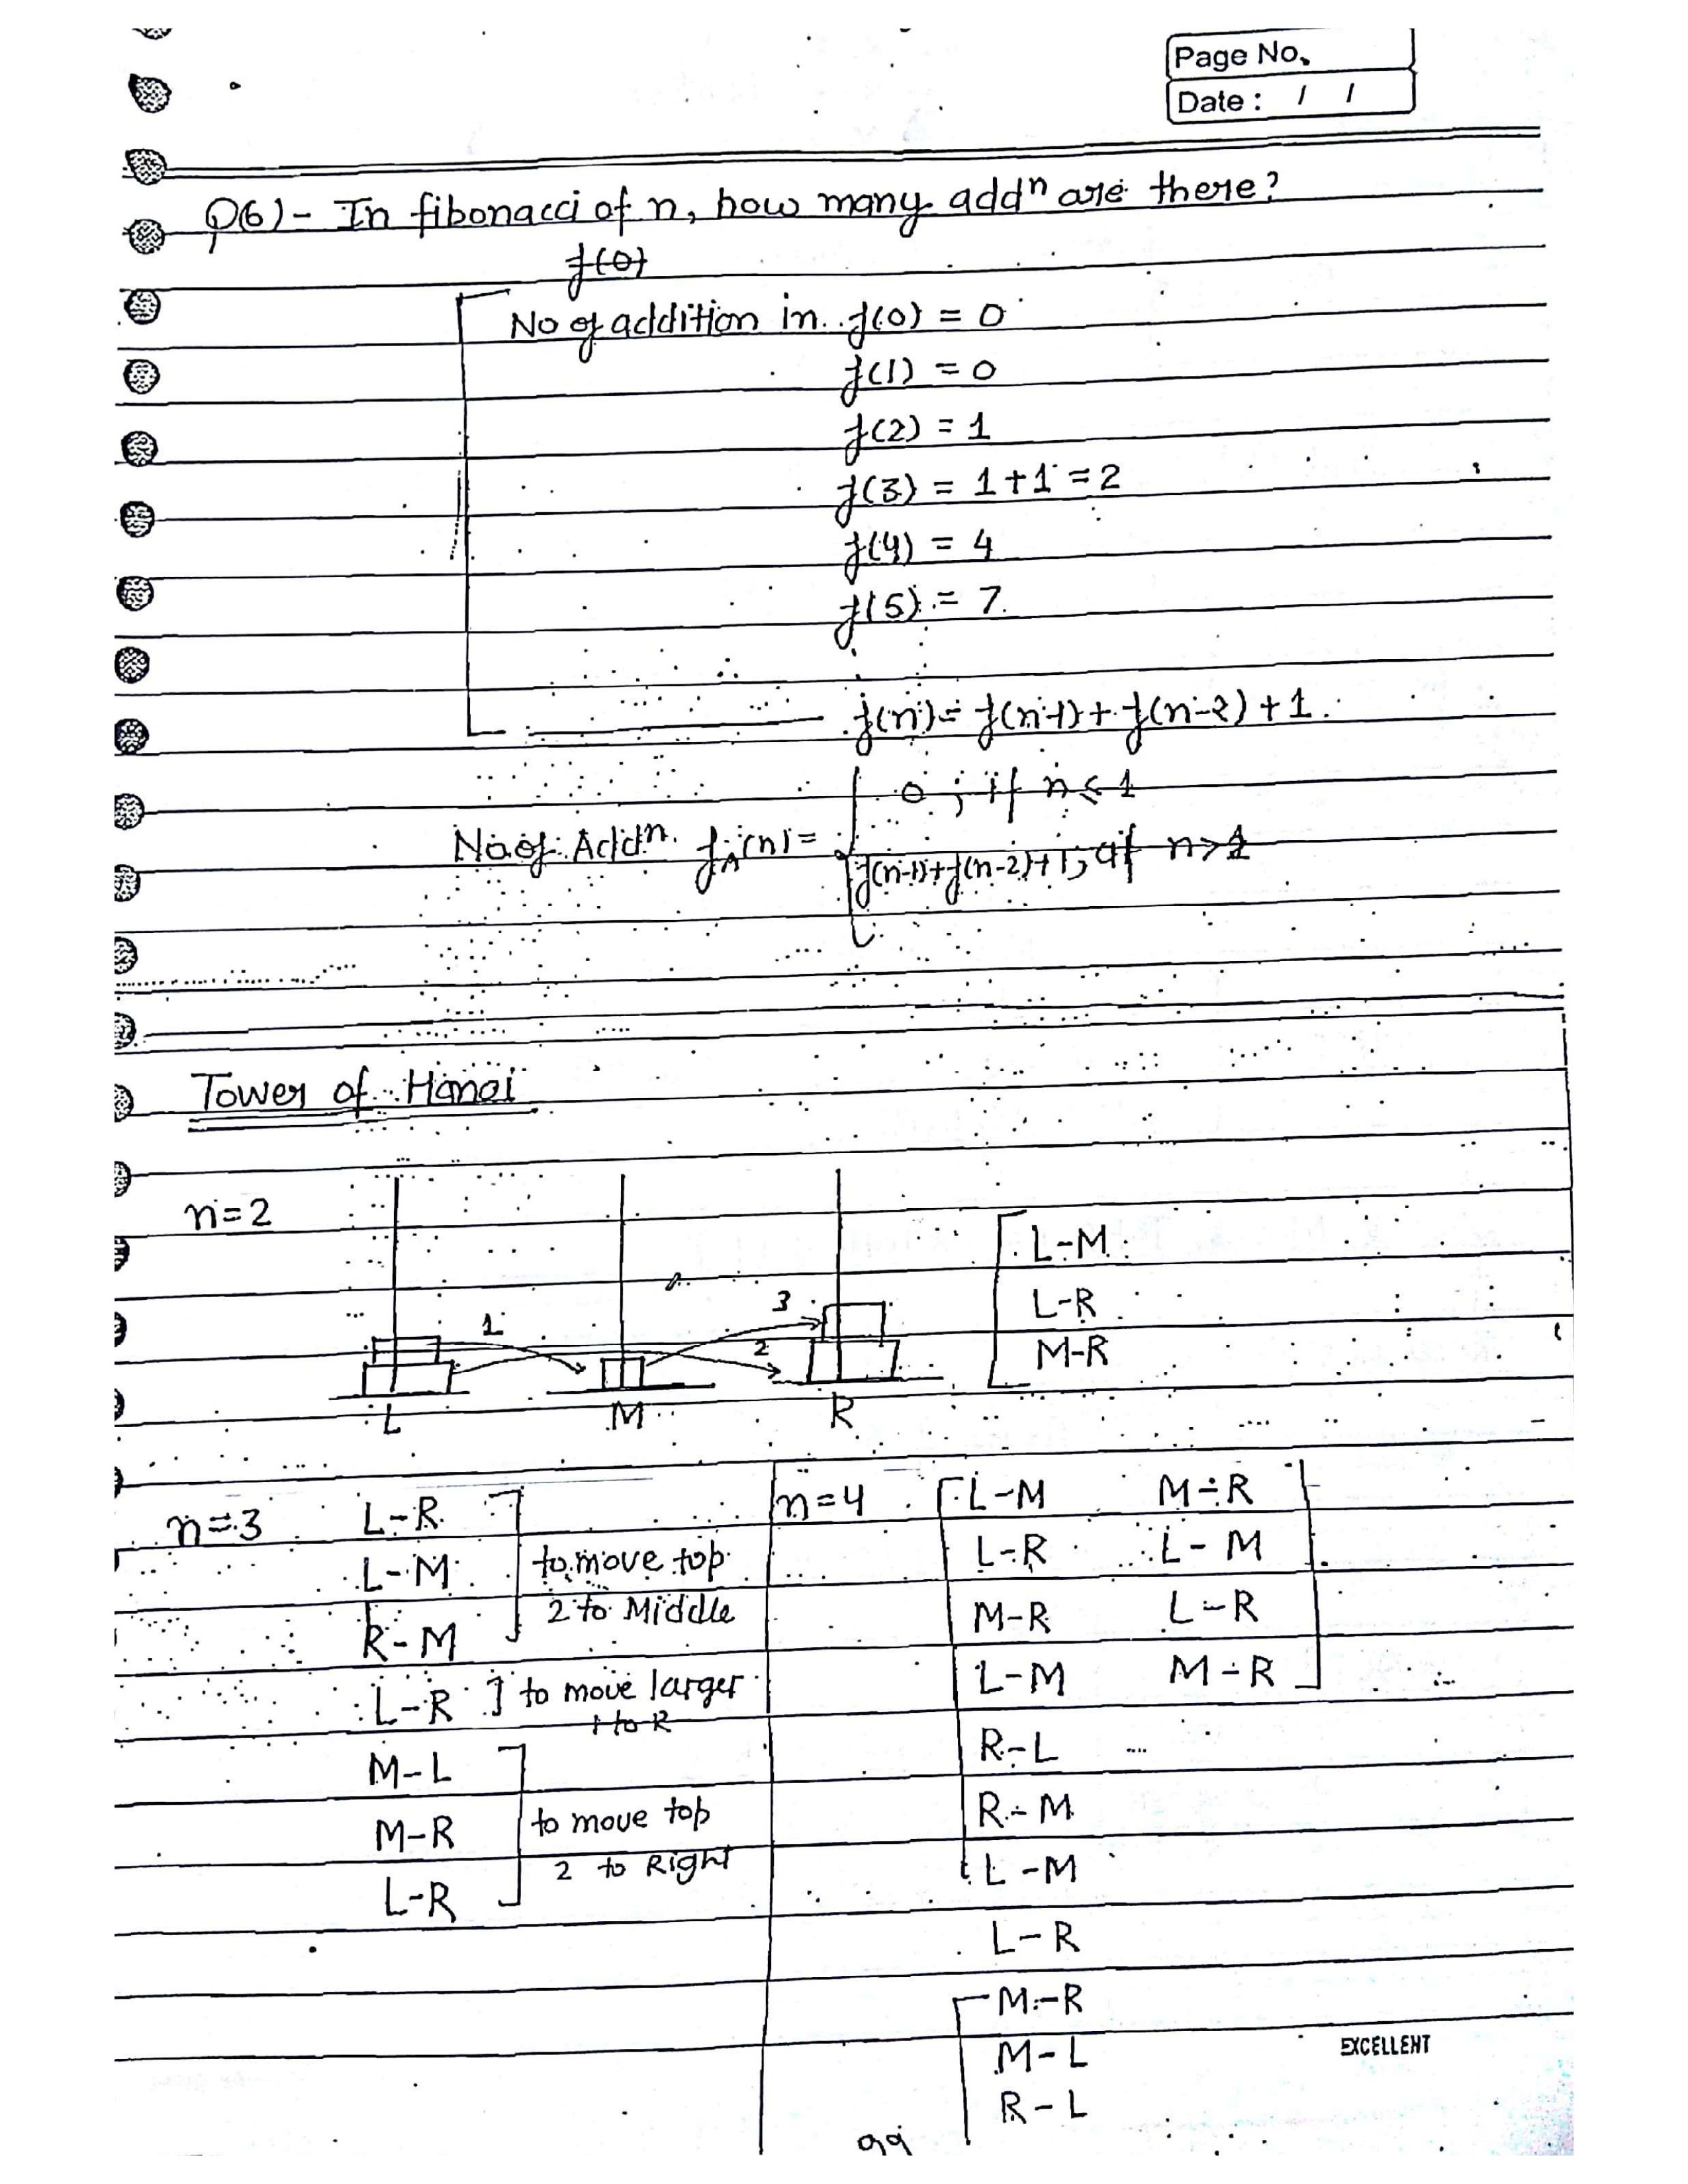 Page No.
Date : / /
Q(6)- In fibonacci of n, how many addⁿ are there?
f(0)
No of addition in f(0) = 0
f(1) = 0
f(2) = 1
f(3) = 1+1 = 2
f(4) = 4
f(5) = 7
f(n) = f(n-1) + f(n-2) + 1.
0 ; if n ≤ 1
No of Addⁿ. f_A(n) =
f(n-1)+f(n-2)+1; if n>1
Tower of Hanoi
n=2
L-M
L-R
M-R
1
3
2
L M R
n=3
L-R
L-M
R-M
to move top
2 to Middle
L-R
to move larger
1 to R
M-L
M-R
L-R
to move top
2 to Right
n=4
L-M
L-R
M-R
L-M
R-L
R-M
L-M
L-R
M-R
M-L
R-L
M-R
L-M
L-R
M-R
EXCELLENT